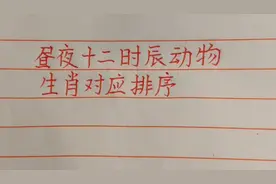 昼夜十二时辰动物
生肖对应排序